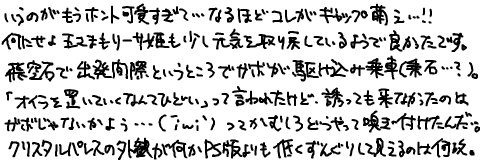 いうのがもうホント可愛すぎて…なるほどコレがギャップ萌え…!!
何にせよ玉ずまもりーサ姫も少し元気を取り戻しているようで良かったです。
飛空石で出発間際というところでガボが駆け込み乗車(乗石…?)。
「オイラを置いていくなんてひどい」って言われたけど、誘っても来なかったのは
ガボじゃないかよう…(´;ω;`) ってかむしろどうやって嗅ぎ付けたんだ。
クリスタルパレスの外観が何かPS版よりも低くずんぐりして見えるのは何故。